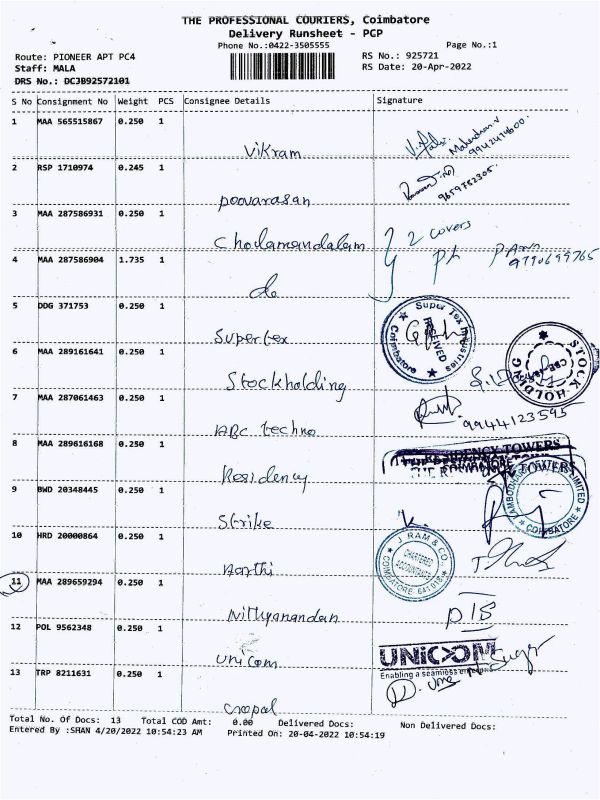 THE PROFESSIONAL COURIERS, Coimbatore
Delivery Runsheet - PCP
Phone No.:0422-3505555
Page No.:1
Route: PIONEER APT PC4
RS No.: 925721
Staff: MALA
RS Date: 20-Apr-2022
DRS No.: DCJB92572101
S No Consignment No Weight PCS Consignee Details Signature
1 MAA 565515867 0.250 1
Vikram
2 RSP 1710974 0.245 1
poovarasan
9659752305
3 MAA 287586931 0.250 1
Cholamandalam 2 covers
4 MAA 287586904 1.735 1
9790699765
do
5 DDG 371753 0.250 1
Super Tex Industries
RECEIVED
Coimbatore
Supertex
6 MAA 289161641 0.250 1
STOCK-HOLDING
Stockholding
7 MAA 287061463 0.250 1
9944123595
ABC techno
8 MAA 289616168 0.250 1
THE RESIDENCY TOWERS
Residency
9 BWD 20348445 0.250 1
LIMITED
COIMBATORE
Strike
10 HRD 20000864 0.250 1
J. RAM & CO.,
CHARTERED
ACCOUNTANTS
COIMBATORE, 641 018
Aarthi
11 MAA 289659294 0.250 1
Nithyanandan
12 POL 9562348 0.250 1
UNICOM
Enabling a seamless
Unicom
13 TRP 8211631 0.250 1
Cropal
Total No. Of Docs: 13 Total COD Amt: 0.00 Delivered Docs: Non Delivered Docs:
Entered By :SHAN 4/20/2022 10:54:23 AM Printed On: 20-04-2022 10:54:19